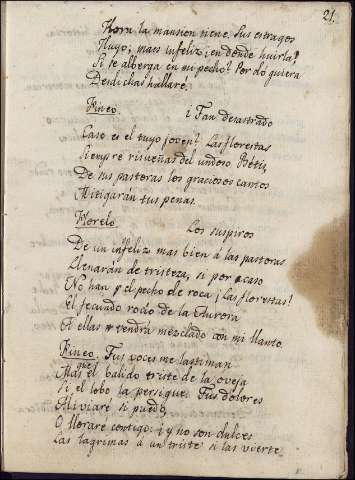 21.
Hora la mansion tiene. Sus estragos
Huyo; maes infeliz, en dónde huirla?
Si se alberga en mi pecho? Por do quiera
Desdichas hallaré.
Fineo. ¡Tan desastrado
Caso es el tuyo joven? Las florestas
Siempre risueñas del undoso Bétis,
De sus pastoras los graciosos cantos
Mitigarán tus penas.
Morelo. Los suspiros
De un infeliz mas bien á las pastoras
Llenarán de tristeza, si por acaso
No han el pecho de roca. ¡Las florestas!
El fecundo rocio de la Aurora
A ellas vendra mezclado con mi llanto.
Fineo. Tus voces me lastiman
Mas que el balido triste de la oveja
Si el lobo la persigue. Tus dolores
Aliviaré si puedo,
O lloraré contigo: ¡y no son dulces
Las lagrimas á un triste si las vierte